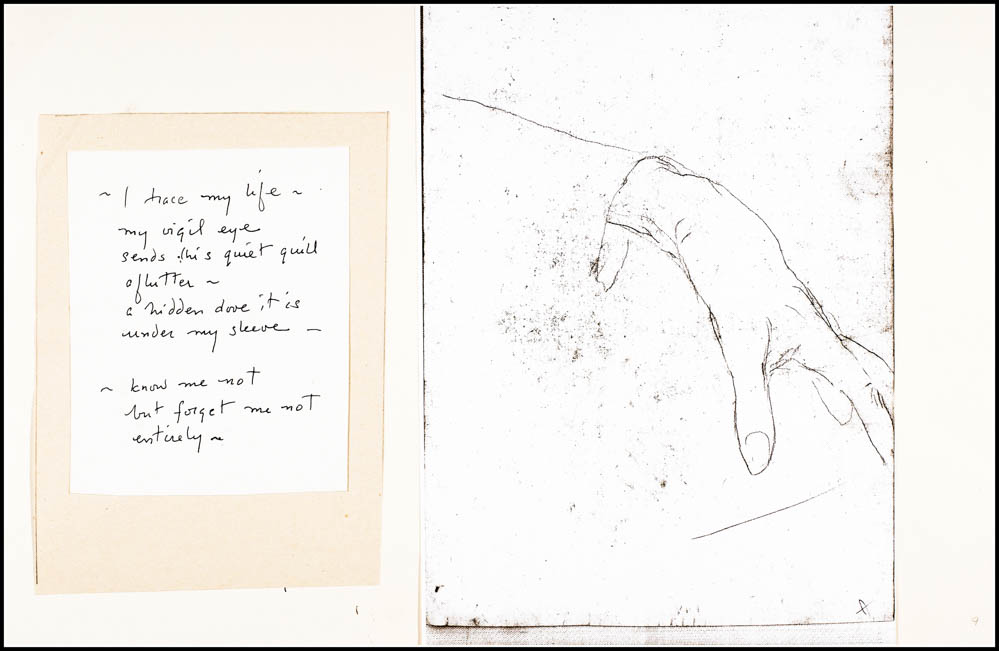 ~ I trace my life ~
my vigil eye
sends this quiet quill
aflutter ~
a hidden dove it is
under my sleeve –
~ know me not
but forget me not
entirely ~
9